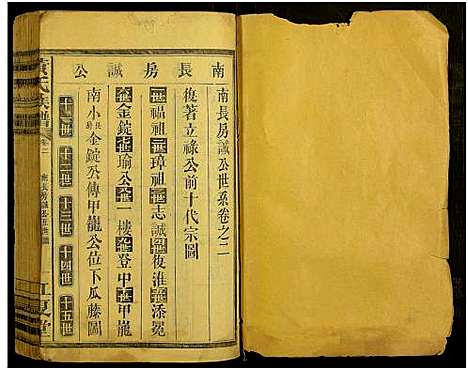 南長房誠公
南長房誠公世系卷之二
復著立祿公前十代宗圖
一世福祖二世璋祖三世志誠四世復淮五世添冕
六世金錠七世瑜公八世一樓九世登甲十世甲龍
南小長房金錠公傳甲龍公位下瓜藤圖
十一世 十二世 十三世 十四世 十五世
黃氏族譜
卷二
南長房誠公世系圖
江夏堂